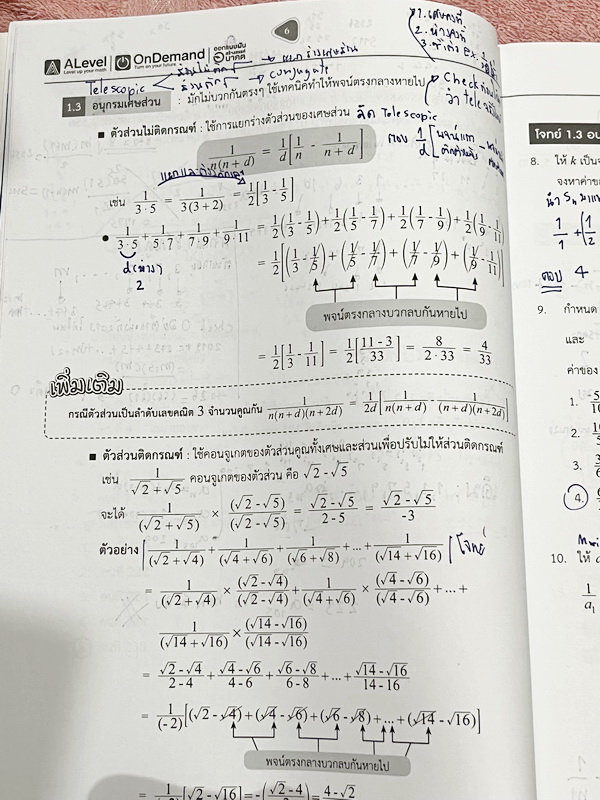 6
ALevel
Level up your math
OnDemand
Turn on your future
ออกแบบฝัน
สร้างสรรค์
อนาคต
Telescopic
conjugate
1.3 อนุกรมเศษส่วน : มักไม่บวกกันตรงๆ ใช้เทคนิคทำให้พจน์ตรงกลางหายไป
Check ก่อน
ว่า tele
■ ตัวส่วนไม่ติดกรณฑ์ : ใช้การแยกร่างตัวส่วนของเศษส่วน
จัด Telescopic
1/n(n + d) = 1/d[1/n - 1/n + d]
ตอบ 1/d
เช่น 1/3·5 = 1/3(3 + 2) = 1/2[1/3 - 1/5]
● 1/3·5 + 1/5·7 + 1/7·9 + 1/9·11 = 1/2(1/3 - 1/5) + 1/2(1/5 - 1/7) + 1/2(1/7 - 1/9) + 1/2(1/9 - 1/11)
= 1/2[(1/3 - 1/5) + (1/5 - 1/7) + (1/7 - 1/9) + (1/9 - 1/11)]
2
พจน์ตรงกลางบวกลบกันหายไป
= 1/2[1/3 - 1/11] = 1/2[11 - 3/33] = 8/2·33 = 4/33
เพิ่มเติม
กรณีตัวส่วนเป็นลำดับเลขคณิต 3 จำนวนคูณกัน 1/n(n+d)(n+2d) = 1/2d[1/n(n+d) - 1/(n+d)(n+2d)]
■ ตัวส่วนติดกรณฑ์ : ใช้คอนจูเกตของตัวส่วนคูณทั้งเศษและส่วนเพื่อปรับไม่ให้ส่วนติดกรณฑ์
เช่น 1/√2 + √5 คอนจูเกตของตัวส่วน คือ √2 - √5
จะได้ 1/(√2 + √5) × (√2 - √5)/(√2 - √5) = √2 - √5/2 - 5 = √2 - √5/-3
ตัวอย่าง 1/(√2 + √4) + 1/(√4 + √6) + 1/(√6 + √8) + ... + 1/(√14 + √16) โจทย์
= 1/(√2 + √4) × (√2 - √4)/(√2 - √4) + 1/(√4 + √6) × (√4 - √6)/(√4 - √6) + ... +
1/(√14 + √16) × (√14 - √16)/(√14 - √16)
= √2 - √4/2 - 4 + √4 - √6/4 - 6 + √6 - √8/6 - 8 + ... + √14 - √16/14 - 16
= 1/(-2)[(√2 - √4) + (√4 - √6) + (√6 - √8) + ... + (√14 - √16)]
พจน์ตรงกลางบวกลบกันหายไป
[√2 - √16] = -(√2 - 4/2) = 4 - √2
โจทย์ 1.3 อน
8. ให้ k เป็นจ
จงหาค่าข
ตอบ 4
9. กำหนด
และ
ค่าของ
1.
2.
3.
4.
10. ให้
1/a₁